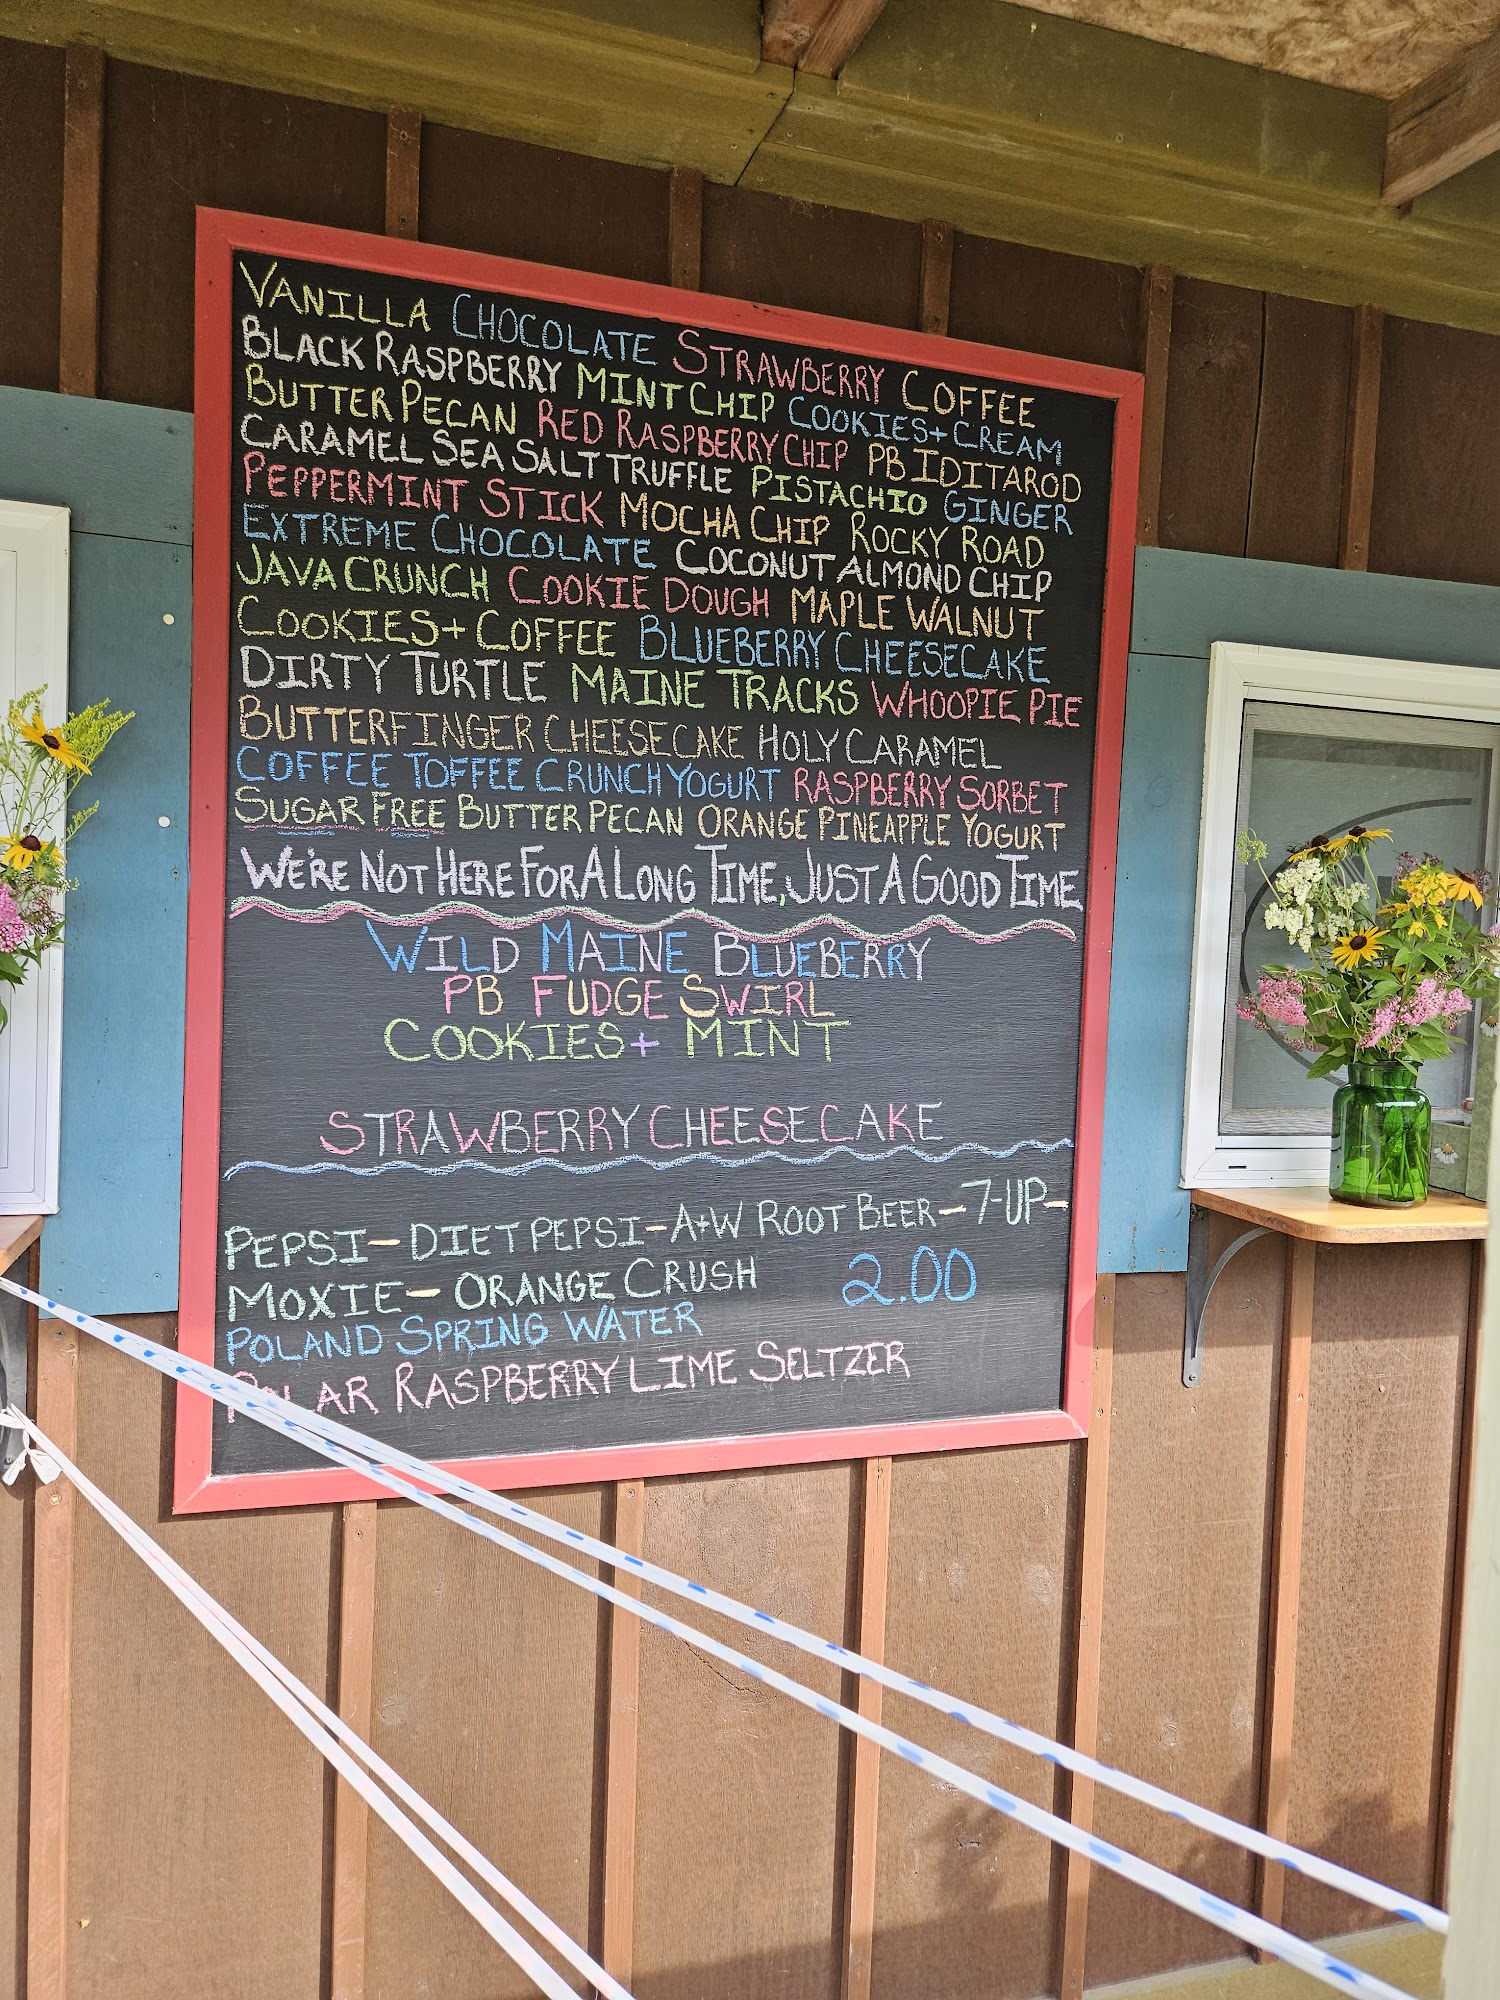 VANILLA CHOCOLATE STRAWBERRY COFFEE
BLACK RASPBERRY MINT CHIP COOKIES+CREAM
BUTTER PECAN RED RASPBERRY CHIP PB IDITAROD
CARAMEL SEA SALT TRUFFLE PISTACHIO GINGER
PEPPERMINT STICK MOCHA CHIP ROCKY ROAD
EXTREME CHOCOLATE COCONUT ALMOND CHIP
JAVA CRUNCH COOKIE DOUGH MAPLE WALNUT
COOKIES+COFFEE BLUEBERRY CHEESECAKE
DIRTY TURTLE MAINE TRACKS WHOOPIE PIE
BUTTERFINGER CHEESECAKE HOLY CARAMEL
COFFEE TOFFEE CRUNCH YOGURT RASPBERRY SORBET
SUGAR FREE BUTTER PECAN ORANGE PINEAPPLE YOGURT
WE'RE NOT HERE FOR A LONG TIME, JUST A GOOD TIME
WILD MAINE BLUEBERRY
PB FUDGE SWIRL
COOKIES+ MINT
STRAWBERRY CHEESECAKE
PEPSI-DIET PEPSI-A+W ROOT BEER-7-UP-
MOXIE-ORANGE CRUSH 2.00
POLAND SPRING WATER
POLAR RASPBERRY LIME SELTZER